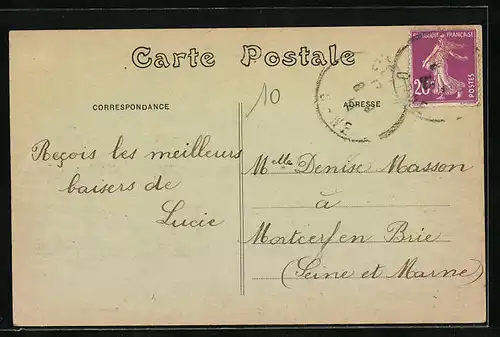 Carte Postale
CORRESPONDANCE
ADRESSE
10
Reçois les meilleurs
baisers de
Lucie
Melle Denise Masson
à
Mortcerf en Brie
(Seine et Marne)
REPUBLIQUE FRANÇAISE
20
POSTES